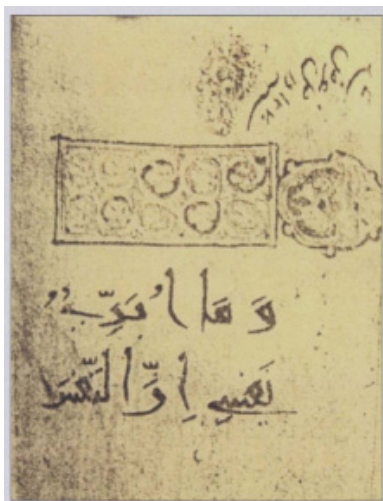 وَ مَا اُبَرِّئُ
نَفسِي اِنَّ النَّفسَ